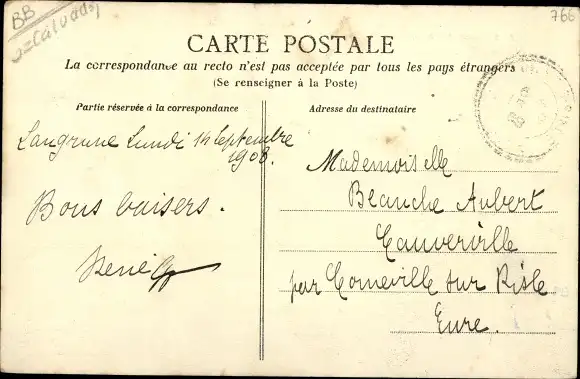 BB
Calvados
766
CARTE POSTALE
La correspondance au recto n'est pas acceptée par tous les pays étrangers
(Se renseigner à la Poste)
Partie réservée à la correspondance
Langrune Lundi 14 Septembre
1908.
Bons baisers.
René
Adresse du destinataire
Mademoiselle
Blanche Aubert
Cauverville
par Corneville sur Risle
Eure.